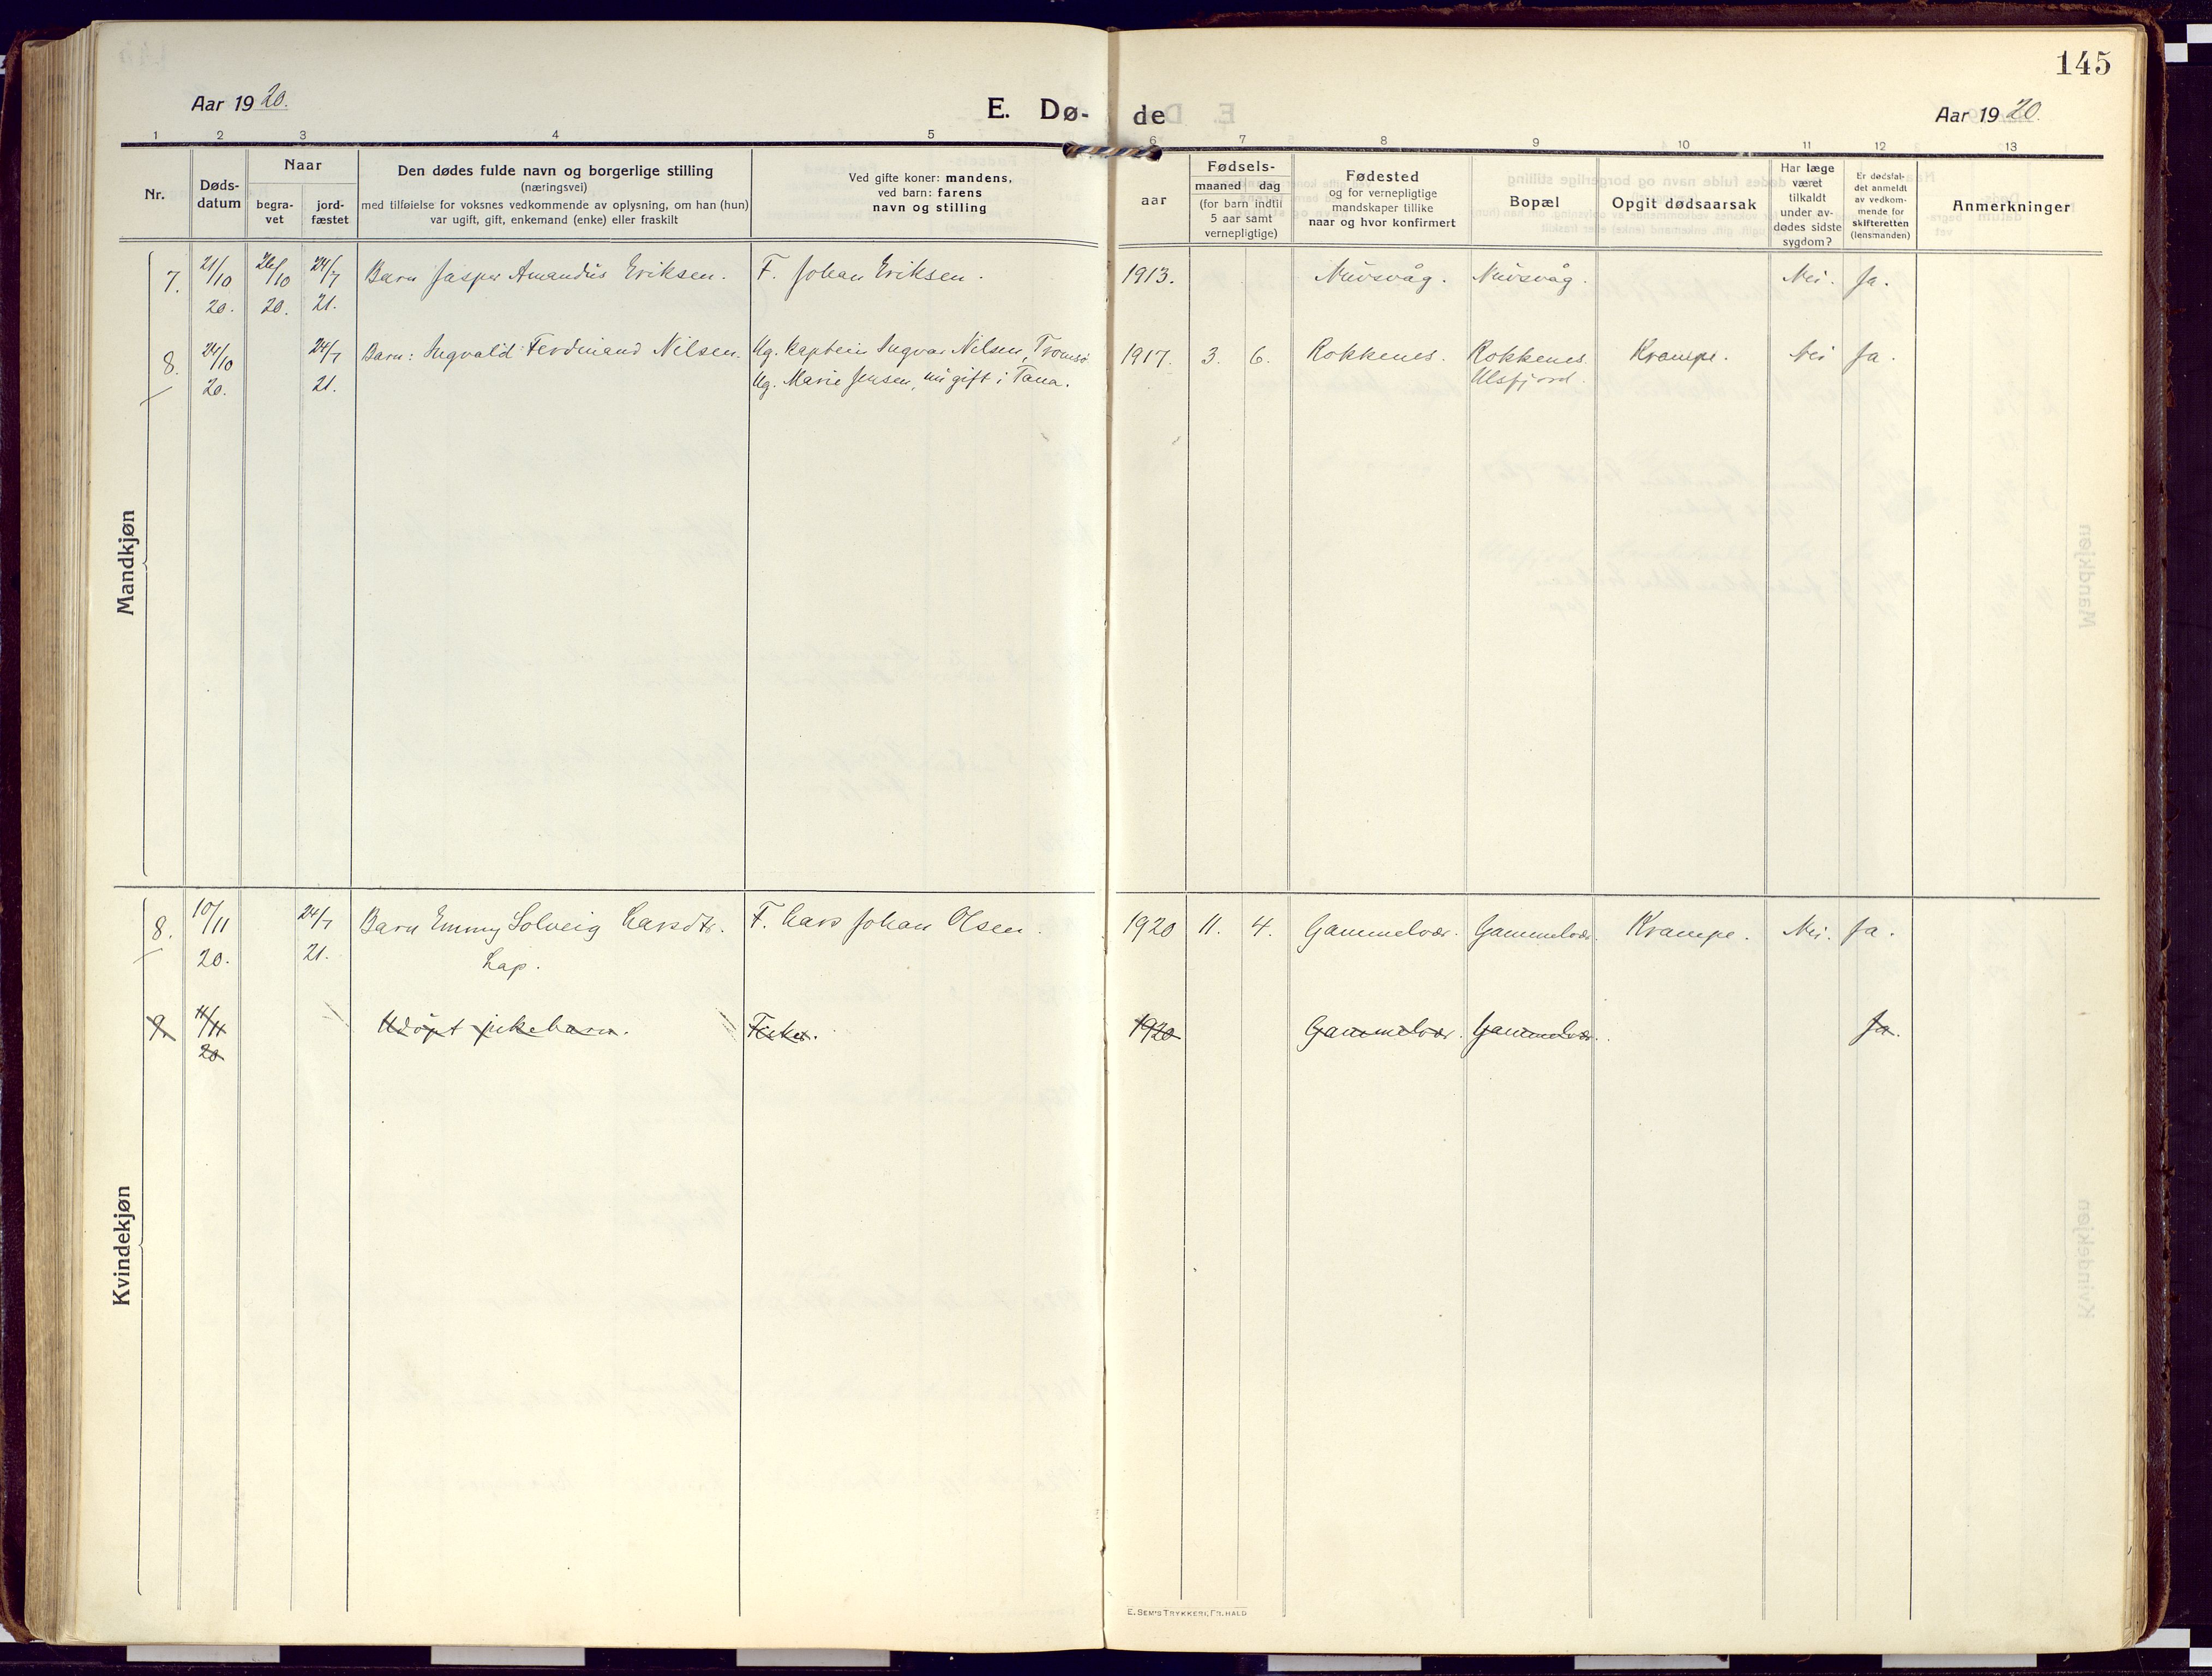 145
Aar 1920.
E. Dø-
de
Aar 1920.
1 2 3 4 5 6 7 8 9 10 11 12 13
Nr.
Døds-
datum
Naar
begra-
vet
jord-
fæstet
Den dødes fulde navn og borgerlige stilling
(næringsvei)
med tilføielse for voksnes vedkommende av oplysning, om han (hun)
var ugift, gift, enkemand (enke) eller fraskilt
Ved gifte koner: mandens,
ved barn: farens
navn og stilling
aar
Fødsels-
maaned dag
(for barn indtil
5 aar samt
vernepligtige)
Fødested
og for vernepligtige
mandskaper tillike
naar og hvor konfirmert
Bopæl
Opgit dødsaarsak
Har læge
været
tilkaldt
under av-
dødes sidste
sygdom?
Er dødsfal-
det anmeldt
av vedkom-
mende for
skifteretten
(lensmanden)
Anmerkninger
Mandkjøn
7. 21/10 26/10 24/7 Barn Jasper Amandus Eriksen. F. Johan Eriksen. 1913. Nuvsvåg. Nuvsvåg. Nei. Ja.
20. 20. 21.
8. 24/10 24/7 Barn: Ingvald Ferdinand Nilsen. Ug. Kaptein Ingvar Nilsen, Tromsø 1917. 3. 6. Rokkenes. Rokkenes Krampe. Nei Ja.
20. 21. Ug. Marie Jensen, nu gift i Tana. Ulsfjord.
Kvindekjøn
8. 10/11 24/7 Barn Emmy Solveig Larsdtr. F. Lars Johan Olsen. 1920 11. 4. Gammelvær. Gammelvær. Krampe. Nei. Ja.
20. 21. Lap.
9. 11/11 Udøpt pikebarn. 1920 Gammelvær. Gammelvær. Ja.
20
E. SEM'S TRYKKERI, FR. HALD